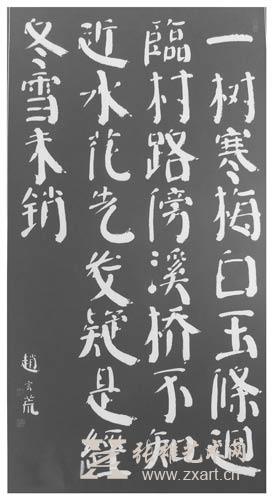 一树寒梅白玉條迥
臨村路傍溪桥不知
近水花先发疑是經
冬雪未销
趙 荒
张雄艺术网
www.zxart.cn